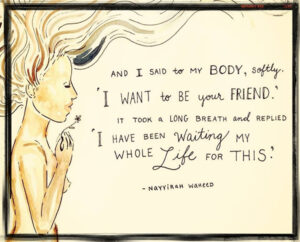 AND I SAID to MY BODY, softly.
'I WANT to BE your FRIEND.'
IT TOOK A LONG BREATH and REPLIED
'I HAVE BEEN Waiting MY
WHOLE Life FOR THIS.'
- NAYYIRAH WAHEED